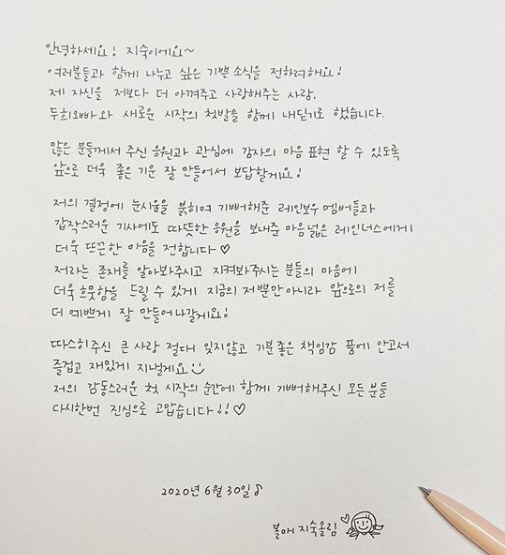 안녕하세요! 지숙이에요~
여러분들과 함께 나누고 싶은 기쁜 소식을 전하려해요!
제 자신을 저보다 더 아껴주고 사랑해주는 사람,
두희오빠와 새로운 시작의 첫발을 함께 내딛기로 했습니다.
많은 분들께서 주신 응원과 관심에 감사의 마음 표현 할 수 있도록
앞으로 더욱 좋은 기운 잘 만들어서 보답할게요!
저의 결정에 눈시울을 붉히며 기뻐해준 레인보우 멤버들과
갑작스러운 기사에도 따뜻한 응원을 보내준 마음넓은 레인너스에게
더욱 뜨끈한 마음을 전합니다♡
저라는 존재를 알아봐주시고 지켜봐주시는 분들의 마음에
더욱 흐뭇함을 드릴 수 있게 지금의 저뿐만아니라 앞으로의 저를
더 예쁘게 잘 만들어나갈게요!
따스히주신 큰 사랑 절대 잊지않고 기분좋은 책임감 품에 안고서
즐겁고 재밌게 지낼게요
저의 감동스러운 첫 시작의 순간에 함께 기뻐해주신 모든 분들
다시한번 진심으로 고맙습니다!!♡
2020년 6월 30일♪
볼매 지숙올림